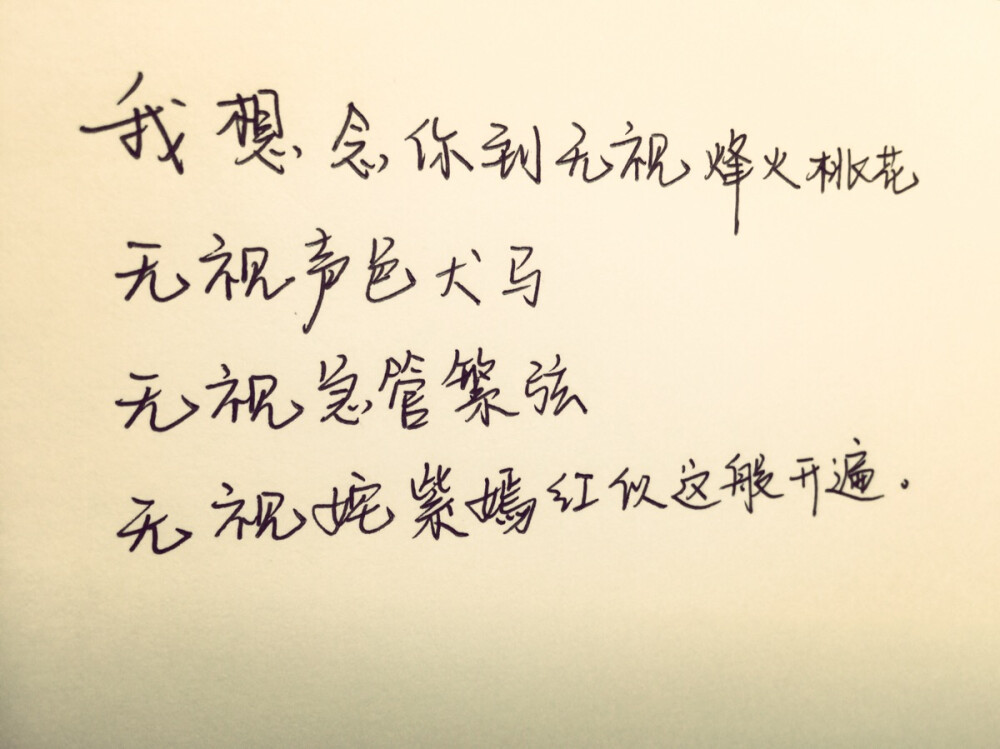 我想念你到无视烽火桃花
无视声色犬马
无视急管繁弦
无视姹紫嫣红似这般开遍。